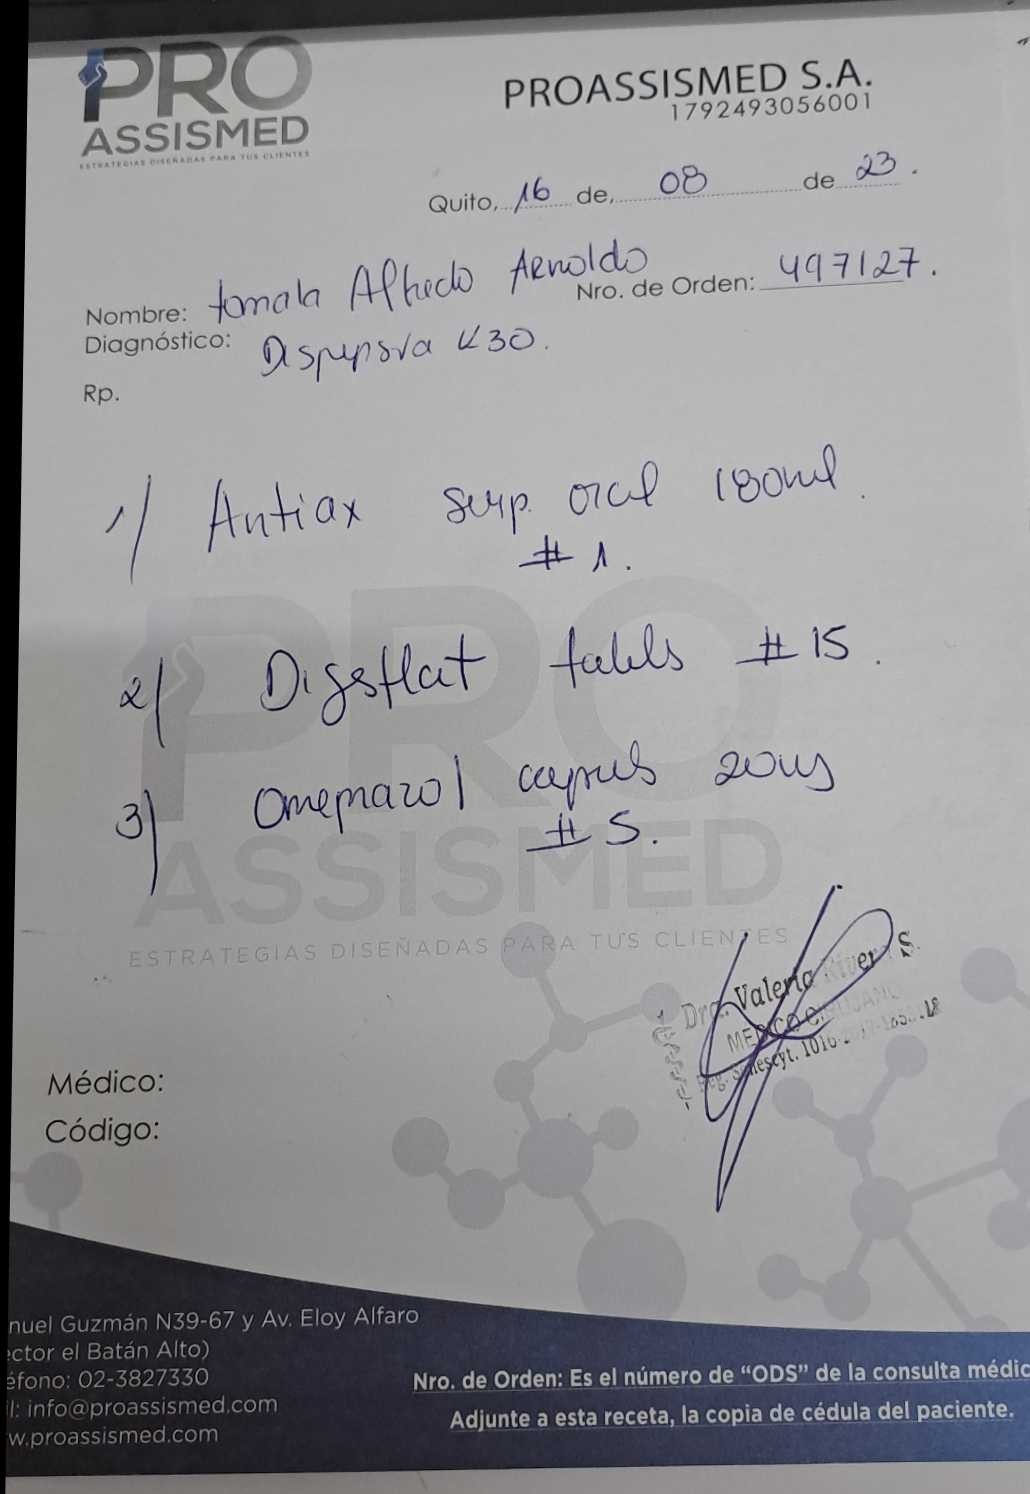 PRO
ASSISMED
ESTRATEGIAS DISEÑADAS PARA TUS CLIENTES
PROASSISMED S.A.
1792493056001
Quito, 16 de, 08 de 23.
Nombre: tomala Alfredo Arnoldo
Nro. de Orden: 497127.
Diagnóstico: Dispepsia K30.
Rp.
1) Antiax susp. oral 180ml.
#1.
2) Digesflat tabls #15.
3) Omeprazol capsuls 20mg
#5.
PRO
ASSISMED
ESTRATEGIAS DISEÑADAS PARA TUS CLIENTES
Dra. Valeria Rivera S.
MEDICO CIRUJANO
Médico:
Código:
nuel Guzmán N39-67 y Av. Eloy Alfaro
ector el Batán Alto)
éfono: 02-3827330
l: info@proassismed.com
w.proassismed.com
Nro. de Orden: Es el número de “ODS” de la consulta médic
Adjunte a esta receta, la copia de cédula del paciente.